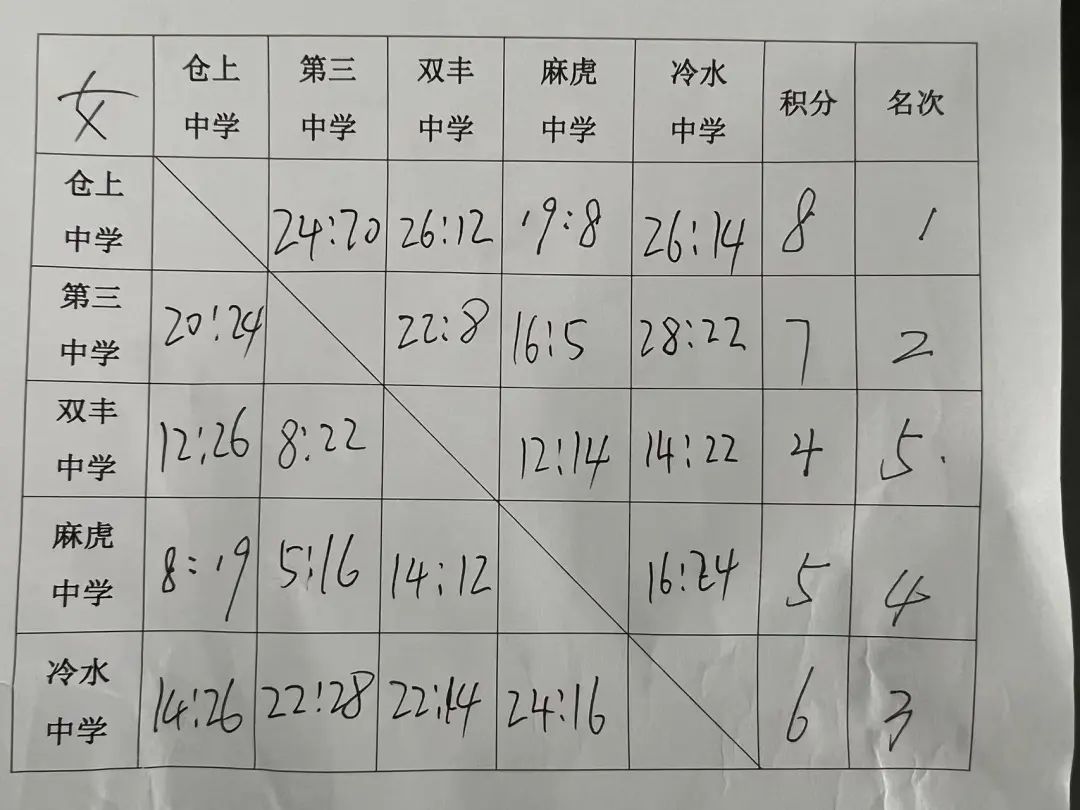 女 仓上中学 第三中学 双丰中学 麻虎中学 冷水中学 积分 名次
仓上中学 24:20 26:12 19:8 26:14 8 1
第三中学 20:24 22:8 16:5 28:22 7 2
双丰中学 12:26 8:22 12:14 14:22 4 5.
麻虎中学 8:19 5:16 14:12 16:24 5 4
冷水中学 14:26 22:28 22:14 24:16 6 3